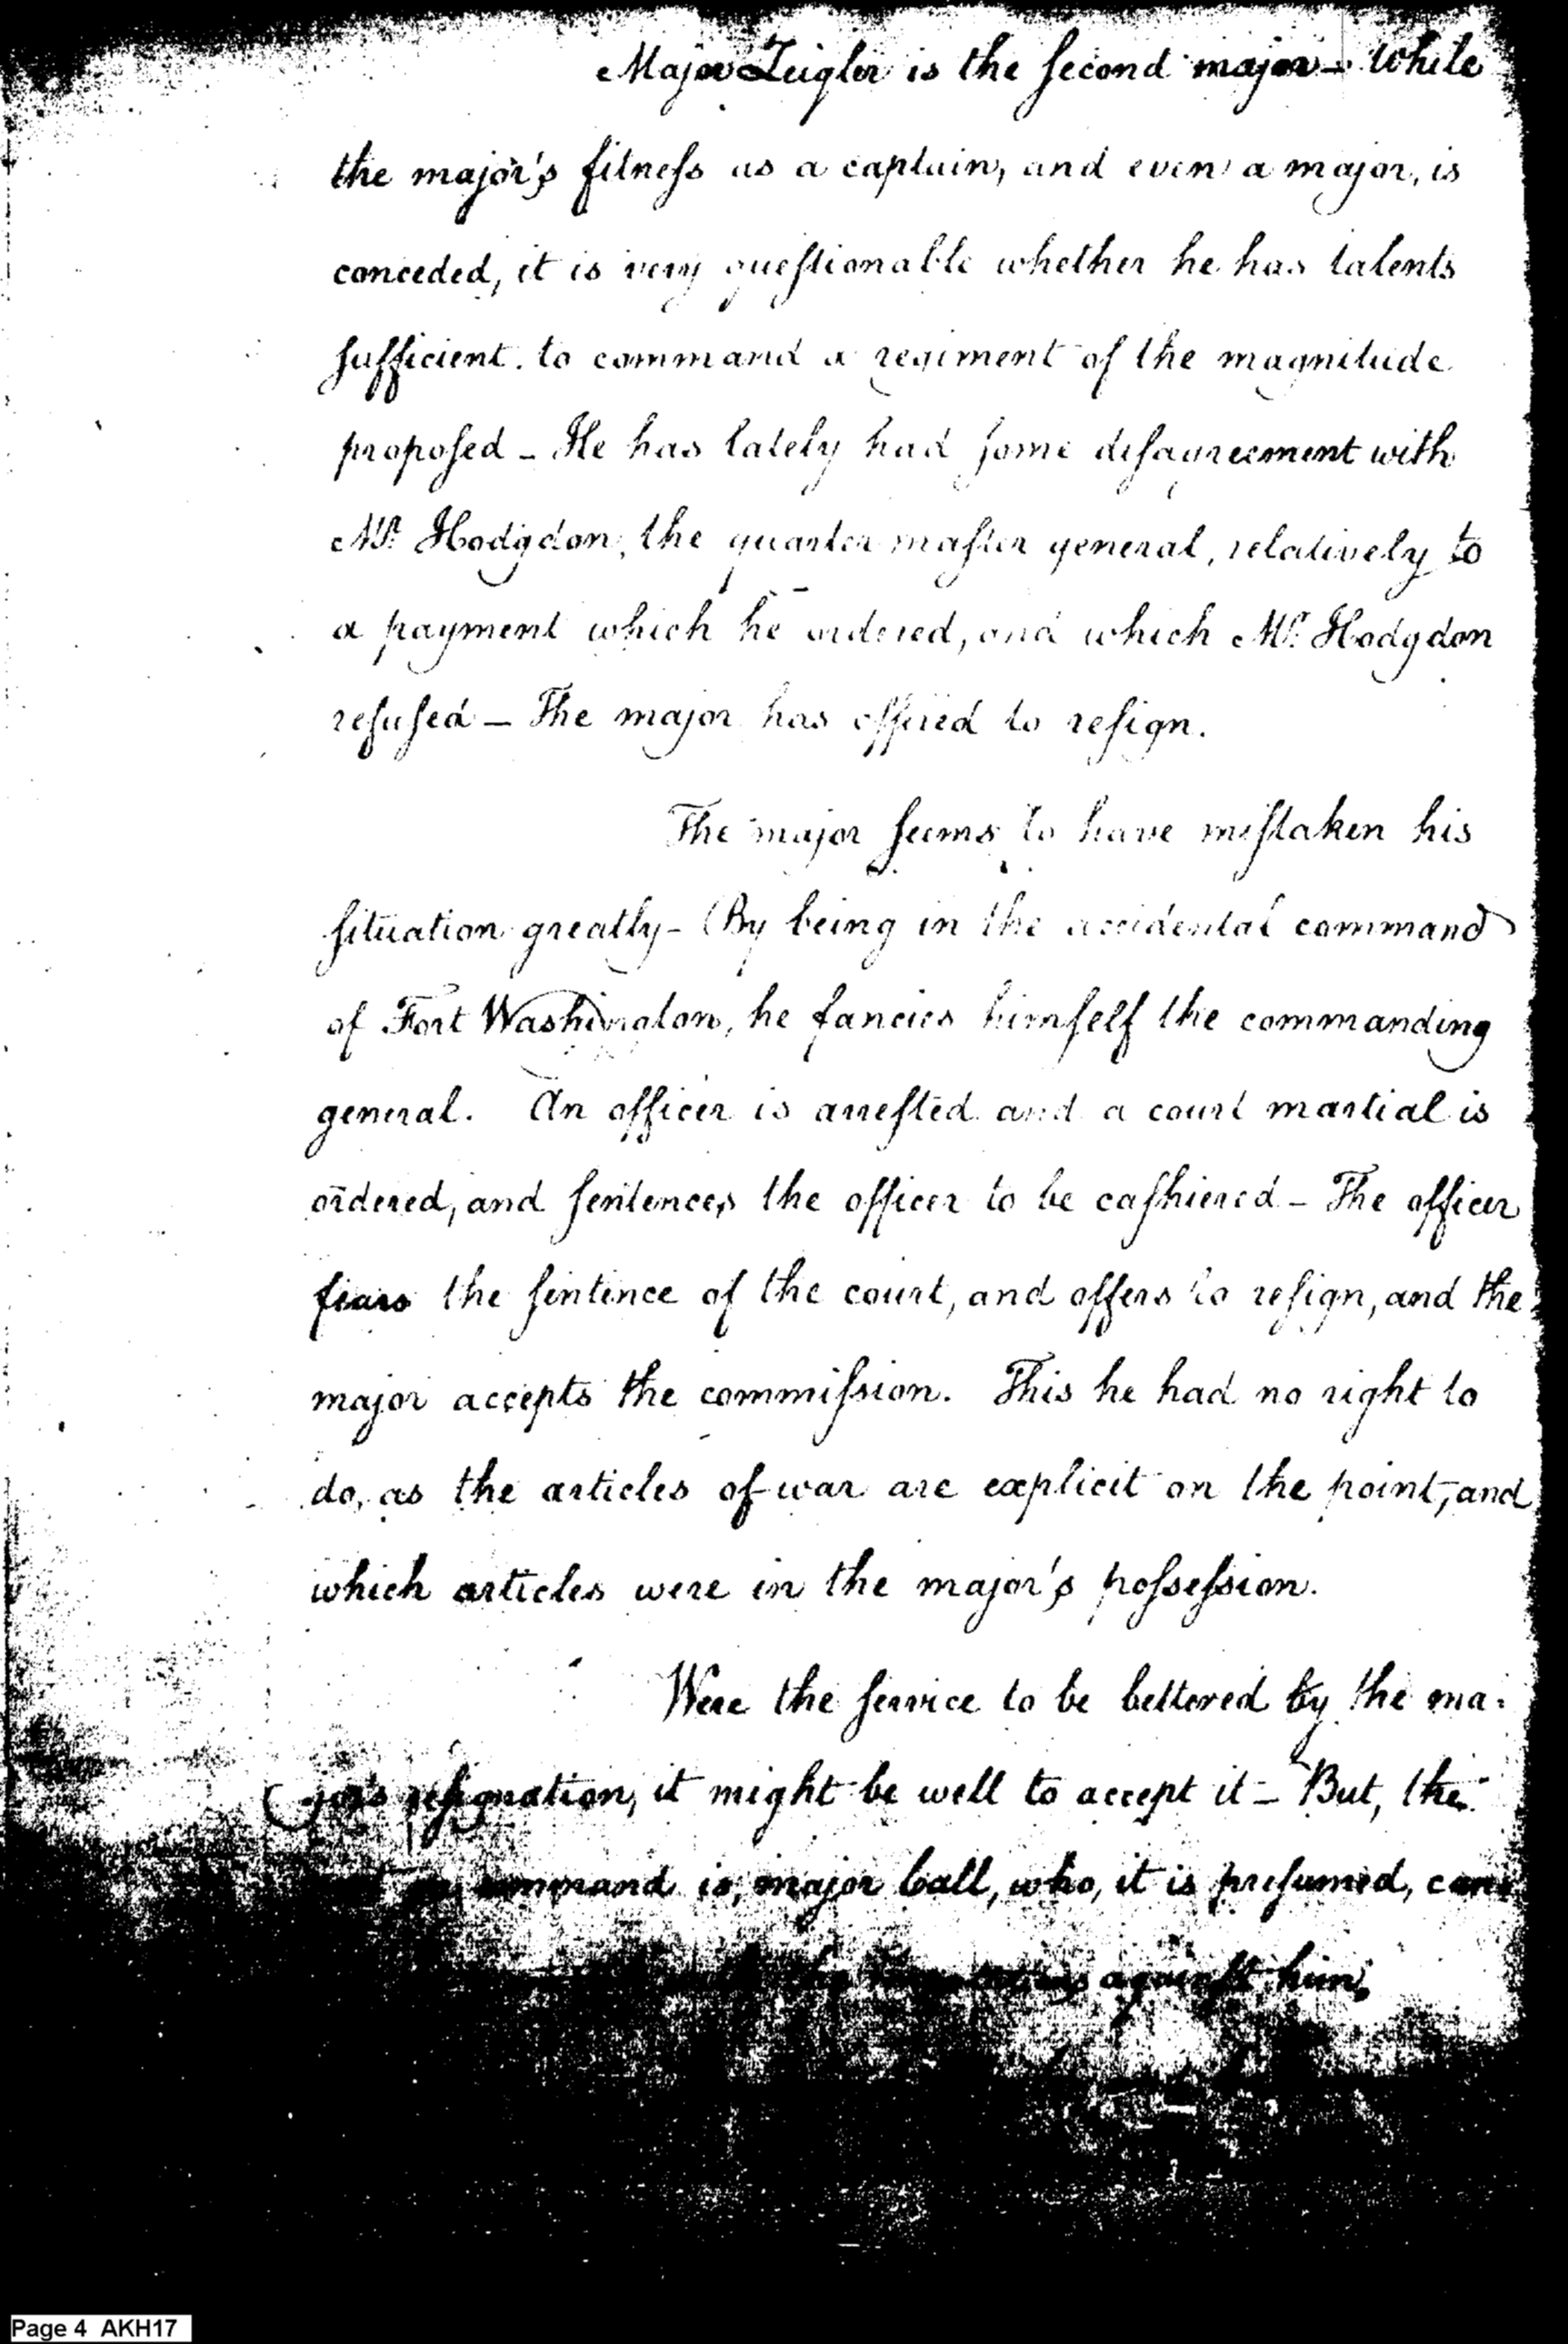 Major Zeigler is the second major – while
the major's fitness as a captain, and even a major, is
conceded, it is very questionable whether he has talents
sufficient to command a regiment of the magnitude
proposed – He has lately had some disagreement with
Mr. Hodgdon, the quarter master general, relatively to
a payment which he ordered, and which Mr. Hodgdon
refused – The major has offered to resign.
The major seems to have mistaken his
situation greatly – By being in the accidental command
of Fort Washington, he fancies himself the commanding
general. An officer is arrested and a court martial is
ordered, and sentences the officer to be cashiered – The officer
fears the sentence of the court, and offers to resign, and the
major accepts the commission. This he had no right to
do, as the articles of war are explicit on the point, and
which articles were in the major's possession.
Were the service to be bettered by the ma-
jor's resignation, it might be well to accept it – But, the
command is, major Call, who, it is presumed, can
against him,
Page 4 AKH17